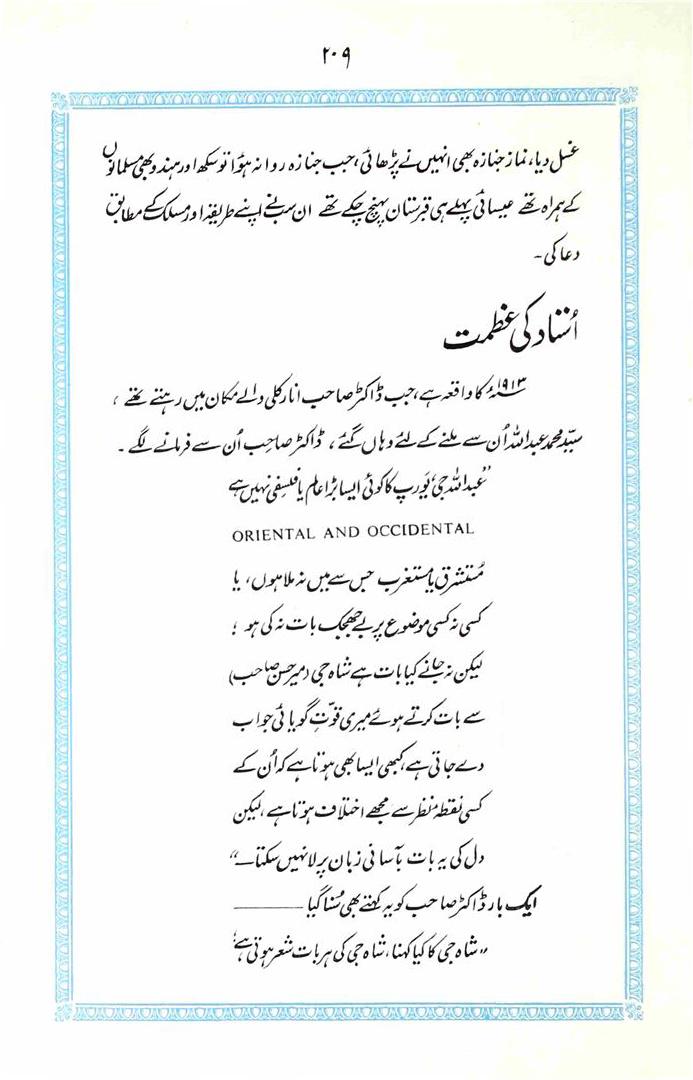 ۲۰۹
غسل دیا، نماز جنازہ بھی انہیں نے پڑھائی، جب جنازہ روانہ ہؤا تو سکھ اور ہندو بھی مسلمانوں
کے ہمراہ تھے عیسائی پہلے ہی قبرستان پہنچ چکے تھے ان سب نے اپنے طریقہ اور مسلک کے مطابق
دعا کی۔
اُستاد کی عظمت
۱۹۱۳ء کا واقعہ ہے، جب ڈاکٹر صاحب انارکلی والے مکان میں رہتے تھے ،
سیّد محمد عبداللہ اُن سے ملنے کے لئے وہاں گئے ، ڈاکٹر صاحب اُن سے فرمانے لگے ۔
”عبداللہ جی یورپ کا کوئی ایسا بڑا عالم یا فلسفی نہیں ہے
ORIENTAL AND OCCIDENTAL
مُستشرق یا مستغرب جس سے میں نہ ملا ہوں، یا
کسی نہ کسی موضوع پر بے جھجک بات نہ کی ہو ؛
لیکن نہ جانے کیا بات ہے شاہ جی (میر حسن صاحب)
سے بات کرتے ہوئے میری قوّتِ گویائی جواب
دے جاتی ہے، کبھی ایسا بھی ہوتا ہے کہ اُن کے
کسی نقطۂ نظر سے مجھے اختلاف ہوتا ہے، لیکن
دل کی یہ بات بآسانی زبان پر لا نہیں سکتا۔“
ایک بار ڈاکٹر صاحب کو یہ کہتے بھی سُنا گیا ———
”شاہ جی کا کیا کہنا، شاہ جی کی ہر بات شعر ہوتی ہے“